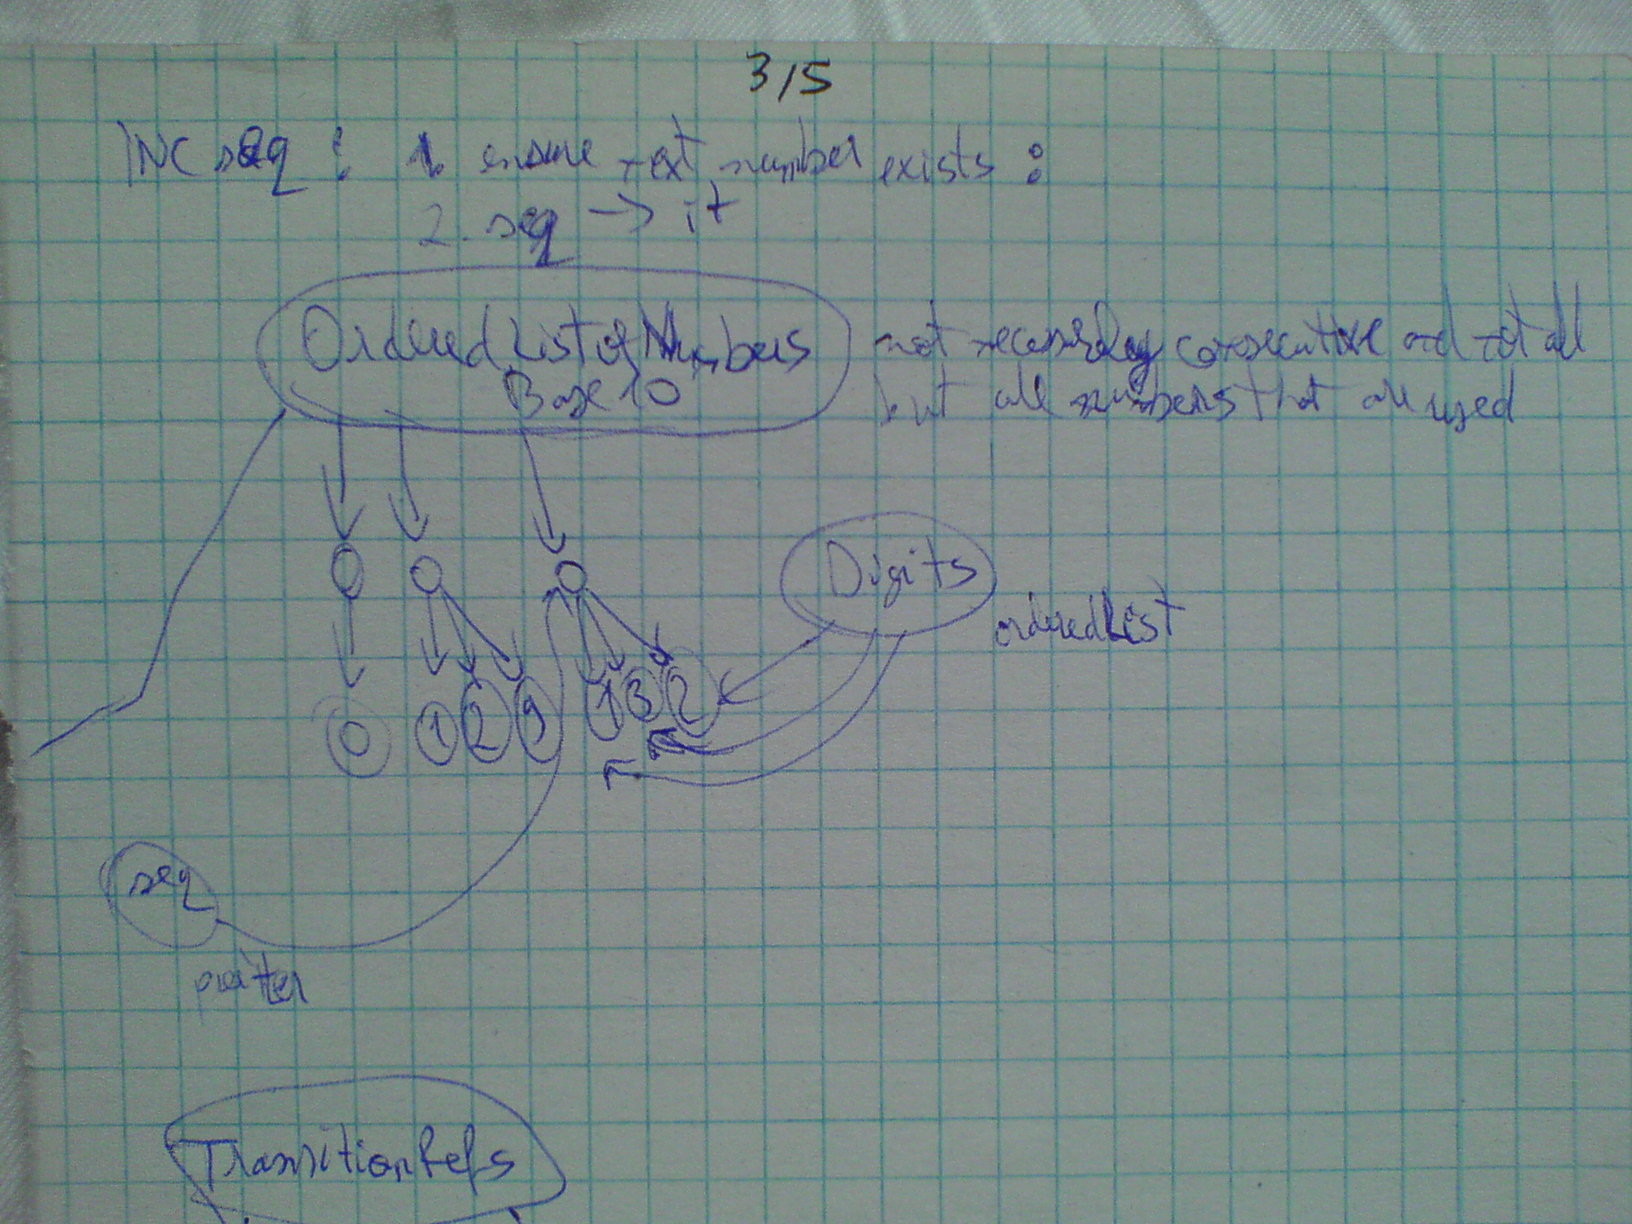 3/5
INC seq : 1. ensure next number exists :
2. seq → it
OrderedListofNumbers
Base 10
not necessarily consecutive and not all
but all numbers that are used
Digits
orderedList
0 1 2 9 1 3 2
seq
pointer
TransitionRefs